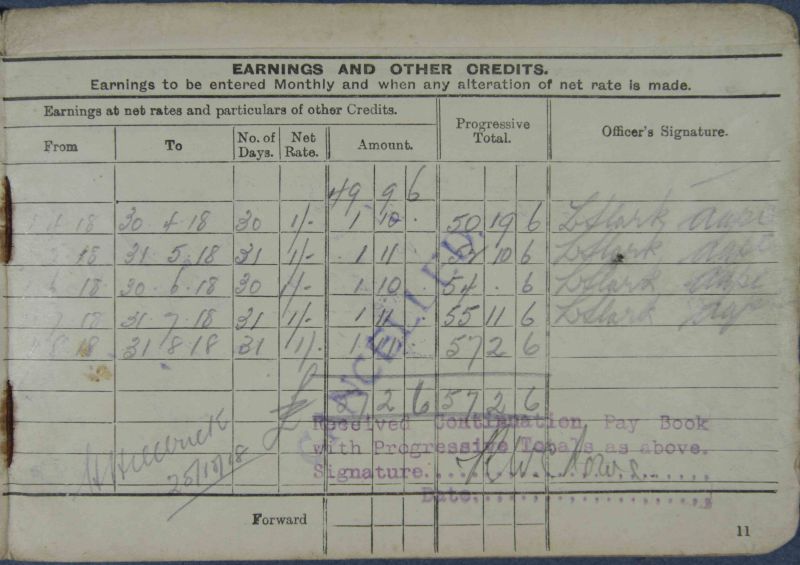 EARNINGS AND OTHER CREDITS.
Earnings to be entered Monthly and when any alteration of net rate is made.
Earnings at net rates and particulars of other Credits.
Progressive Total.
Officer's Signature.
From To No. of Days. Net Rate. Amount.
49 9 6
1 4 18 30 4 18 30 1/- 1 10 . 50 19 6
5 18 31 5 18 31 1/- 1 11 10 6
6 18 30 6 18 30 1/- 1 10 . 54 . 6
7 18 31 7 18 31 1/- 1 11 55 11 6
8 18 31 8 18 31 1/- 1 11 . 57 2 6
57 2 6 57 2 6
CANCELLED
Received Continuation Pay Book
with Progressive Totals as above.
Signature
Date
Forward
11